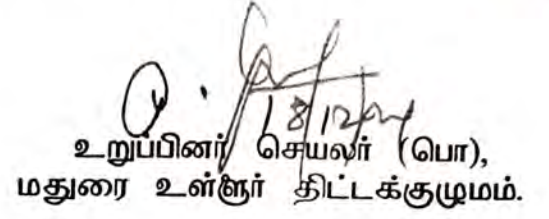 18/12/24
உறுப்பினர் செயலர் (பொ),
மதுரை உள்ளூர் திட்டக்குழுமம்.